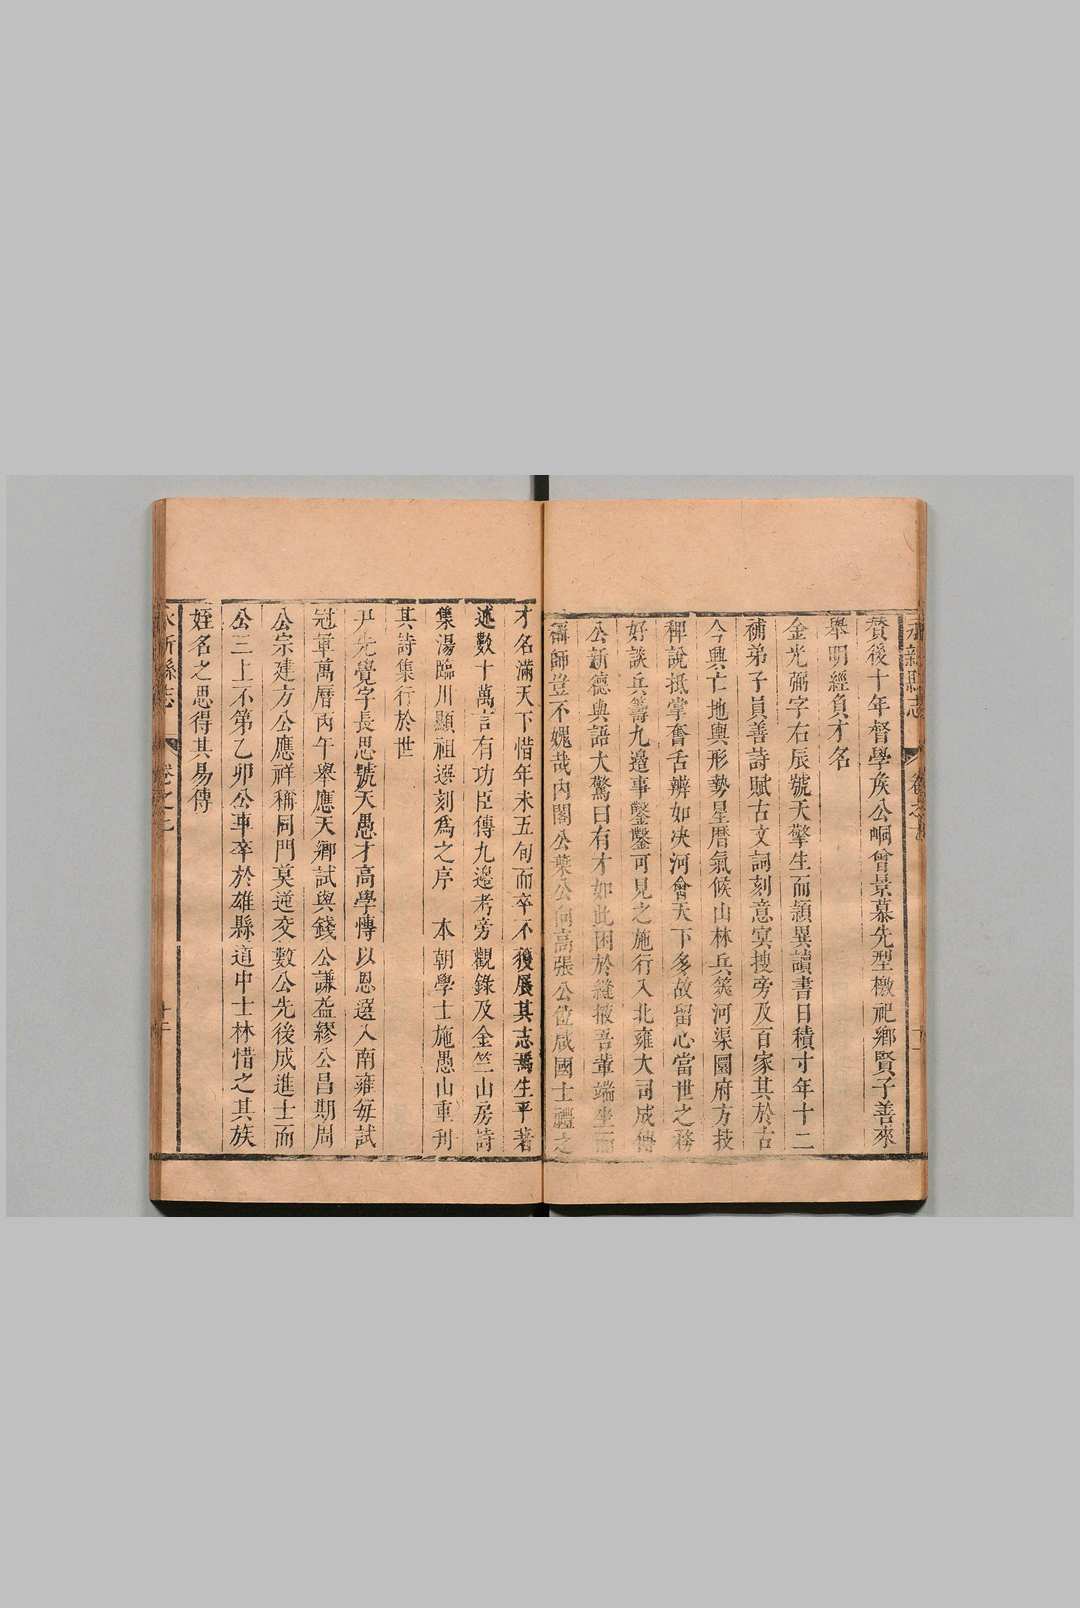 永新縣志 卷之
贊後十年督學矦公峒曾景慕先型檄祀鄉賢子善來
舉明經負才名
金光弼字右辰號天擎生而頴異讀書日積寸年十二
補弟子員善詩賦古文詞刻意㝠搜旁及百家其於古
今興亡地輿形勢星曆氣候山林兵䇲河渠圜府方技
稗說抵掌奮舌辨如决河會天下多故留心當世之務
好談兵籌九邉事鑿鑿可見之施行入北雍大司成傅
公新德與語大驚曰有才如此困於縫掖吾輩端坐而
稱師豈不媿哉內閣公葉公向高張公位咸國士禮之
才名滿天下惜年未五旬而卒不獲展其志焉生平著
述數十萬言有功臣傳九邉考旁觀錄及金竺山房詩
集湯臨川顯祖選刻爲之序 本朝學士施愚山重刋
其詩集行於世
尹先覺字長思號天愚才高學愽以恩選入南雍每試
冠軍萬曆丙午舉應天鄉試與錢公謙益繆公昌期周
公宗建方公應祥稱同門莫逆交數公先後成進士而
公三上不第乙卯公車卒於雄縣道中士林惜之其族
姪名之思得其易傳
永新縣志 卷之三 十二